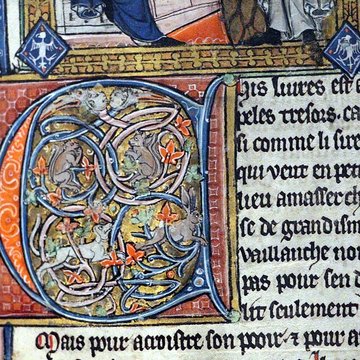 his liures est
peles tresors. ca
si comme li sire
qui veut en pet
lieu amasser ch
se de grandism
vaillanche non
pas pour sen d
lit seulement
Mais pour acroistre son pooir ⁊ pour